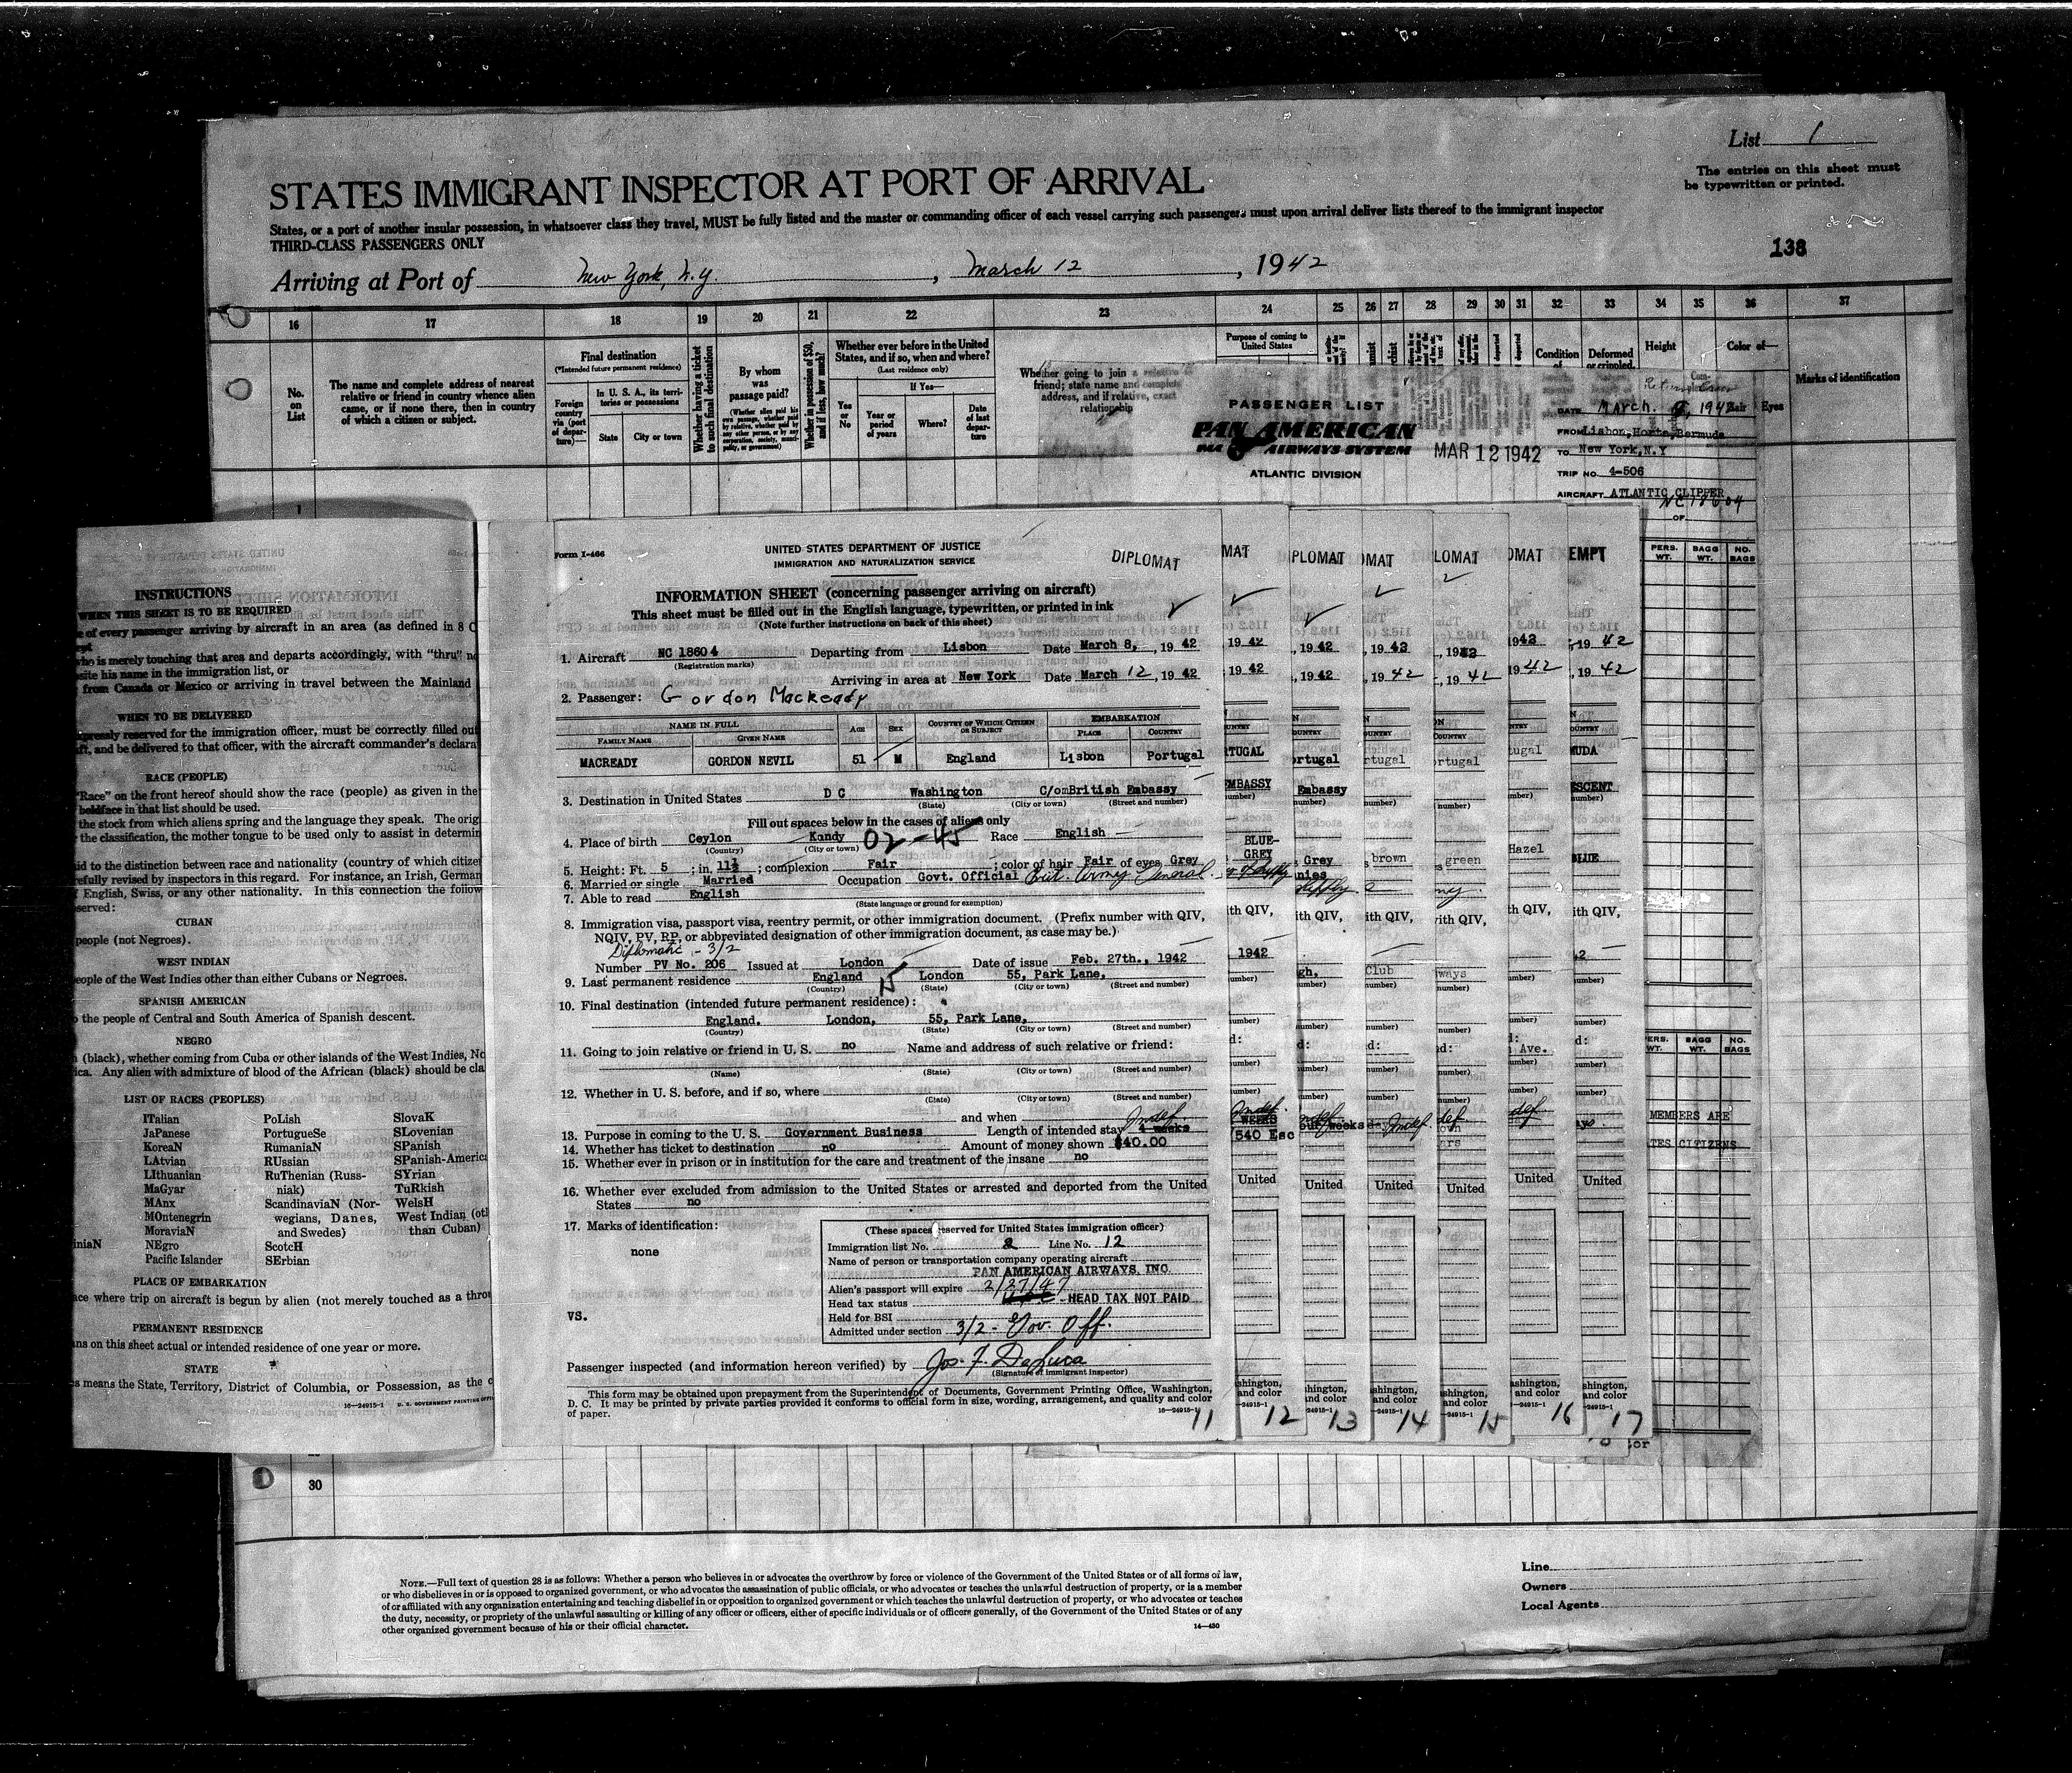 List 1
The entries on this sheet must
be typewritten or printed.
STATES IMMIGRANT INSPECTOR AT PORT OF ARRIVAL
States, or a port of another insular possession, in whatsoever class they travel, MUST be fully listed and the master or commanding officer of each vessel carrying such passengers must upon arrival deliver lists thereof to the immigrant inspector
THIRD-CLASS PASSENGERS ONLY
138
Arriving at Port of New York, N.Y. , March 12 , 1942
16 17 18 19 20 21 22 23 24 25 26 27 28 29 30 31 32 33 34 35 36 37
No.
on
List
The name and complete address of nearest
relative or friend in country whence alien
came, or if none there, then in country
of which a citizen or subject.
Final destination
(*Intended future permanent residence)
Foreign
country
via (port
of depar-
ture)—
In U. S. A., its terri-
tories or possessions
State City or town
Whether having a ticket
to such final destination
By whom
was
passage paid?
(Whether alien paid his
own passage, whether paid
by relative, whether paid by
any other person, or by any
corporation, society, munici-
pality, or government)
Whether in possession of $50,
and if less, how much?
Whether ever before in the United
States, and if so, when and where?
(Last residence only)
If Yes—
Yes
or
No
Year or
period
of years
Where?
Date
of last
depar-
ture
Whether going to join a relative or
friend; state name and complete
address, and if relative, exact
relationship
Purpose of coming to
United States
Condition
of
Deformed
or crippled.
Height
Color of—
Hair Eyes
Marks of identification
PASSENGER LIST
PAN AMERICAN
AIRWAYS SYSTEM
ATLANTIC DIVISION
MAR 12 1942
DATE March. 7, 1942
FROM Lisbon, Horta, Bermuda
TO New York, N.Y
TRIP NO. 4-506
AIRCRAFT ATLANTIC CLIPPER
NC 18604
OF
PERS. WT. BAGG WT. NO. BAGS
MEMBERS ARE
TES CITIZENS
INSTRUCTIONS
WHEN THIS SHEET IS TO BE REQUIRED
e of every passenger arriving by aircraft in an area (as defined in 8 C
ept
who is merely touching that area and departs accordingly, with "thru" no
site his name in the immigration list, or
from Canada or Mexico or arriving in travel between the Mainland
WHEN TO BE DELIVERED
pressly reserved for the immigration officer, must be correctly filled out
ft, and be delivered to that officer, with the aircraft commander's declara
RACE (PEOPLE)
"Race" on the front hereof should show the race (people) as given in the
boldface in that list should be used.
the stock from which aliens spring and the language they speak. The orig
the classification, the mother tongue to be used only to assist in determin
id to the distinction between race and nationality (country of which citize
efully revised by inspectors in this regard. For instance, an Irish, German
English, Swiss, or any other nationality. In this connection the follow
served:
CUBAN
people (not Negroes).
WEST INDIAN
eople of the West Indies other than either Cubans or Negroes.
SPANISH AMERICAN
o the people of Central and South America of Spanish descent.
NEGRO
n (black), whether coming from Cuba or other islands of the West Indies, No
ica. Any alien with admixture of blood of the African (black) should be cla
LIST OF RACES (PEOPLES)
ITalian PoLish SlovaK
JaPanese PortugueSe SLovenian
KoreaN RumaniaN SPanish
LAtvian RUssian SPanish-Americ
LIthuanian RuThenian (Russ- SYrian
MaGyar niak) TuRkish
MAnx ScandinaviaN (Nor- WelsH
MOntenegrin wegians, Danes, West Indian (oth
MoraviaN and Swedes) than Cuban)
iniaN NEgro ScotcH
Pacific Islander SErbian
PLACE OF EMBARKATION
ace where trip on aircraft is begun by alien (not merely touched as a throu
PERMANENT RESIDENCE
ans on this sheet actual or intended residence of one year or more.
STATE
s means the State, Territory, District of Columbia, or Possession, as the c
16—24915-1 U. S. GOVERNMENT PRINTING OFFI
Form I-466
UNITED STATES DEPARTMENT OF JUSTICE
IMMIGRATION AND NATURALIZATION SERVICE
DIPLOMAT
INFORMATION SHEET (concerning passenger arriving on aircraft)
This sheet must be filled out in the English language, typewritten, or printed in ink
(Note further instructions on back of this sheet)
1. Aircraft NC 18604 Departing from Lisbon Date March 8, , 19 42
(Registration marks)
Arriving in area at New York Date March 12 , 19 42
2. Passenger: Gordon Macready
NAME IN FULL AGE SEX COUNTRY OF WHICH CITIZEN OR SUBJECT EMBARKATION
FAMILY NAME GIVEN NAME PLACE COUNTRY
MACREADY GORDON NEVIL 51 M England Lisbon Portugal
3. Destination in United States D C Washington C/omBritish Embassy
(State) (City or town) (Street and number)
Fill out spaces below in the cases of aliens only
4. Place of birth Ceylon Kandy 02-45 Race English
(Country) (City or town)
5. Height: Ft. 5 ; in. 11½ ; complexion Fair ; color of hair Fair of eyes Grey
6. Married or single Married Occupation Govt. Official Brit. Army General.
7. Able to read English
(State language or ground for exemption)
8. Immigration visa, passport visa, reentry permit, or other immigration document. (Prefix number with QIV,
NQIV, PV, RP, or abbreviated designation of other immigration document, as case may be.)
Diplomatic - 3/2
Number PV No. 206 Issued at London Date of issue Feb. 27th., 1942
9. Last permanent residence England London 55, Park Lane,
(Country) (State) (City or town) (Street and number)
10. Final destination (intended future permanent residence):
England. London, 55, Park Lane,
(Country) (State) (City or town) (Street and number)
11. Going to join relative or friend in U. S. no Name and address of such relative or friend:
(Name) (State) (City or town) (Street and number)
12. Whether in U. S. before, and if so, where
(State) (City or town) (Street and number)
and when Indef
13. Purpose in coming to the U. S. Government Business Length of intended stay 4 weeks
14. Whether has ticket to destination no Amount of money shown $40.00
15. Whether ever in prison or in institution for the care and treatment of the insane no
16. Whether ever excluded from admission to the United States or arrested and deported from the United
States no
17. Marks of identification:
none
(These spaces reserved for United States immigration officer)
Immigration list No. 2 Line No. 12
Name of person or transportation company operating aircraft
PAN AMERICAN AIRWAYS, INC.
Alien's passport will expire 2/27/47
Head tax status HEAD TAX NOT PAID
Held for BSI
Admitted under section 3/2 - Gov. Off.
VS.
Passenger inspected (and information hereon verified) by Jos. F. DeLuca
(Signature of immigrant inspector)
This form may be obtained upon prepayment from the Superintendent of Documents, Government Printing Office, Washington,
D. C. It may be printed by private parties provided it conforms to official form in size, wording, arrangement, and quality and color
of paper.
16—24915-1
11 12 13 14 15 16 17
30
NOTE.—Full text of question 28 is as follows: Whether a person who believes in or advocates the overthrow by force or violence of the Government of the United States or of all forms of law,
or who disbelieves in or is opposed to organized government, or who advocates the assassination of public officials, or who advocates or teaches the unlawful destruction of property, or is a member
of or affiliated with any organization entertaining and teaching disbelief in or opposition to organized government or which teaches the unlawful destruction of property, or who advocates or teaches
the duty, necessity, or propriety of the unlawful assaulting or killing of any officer or officers, either of specific individuals or of officers generally, of the Government of the United States or of any
other organized government because of his or their official character.
14—430
Line
Owners
Local Agents